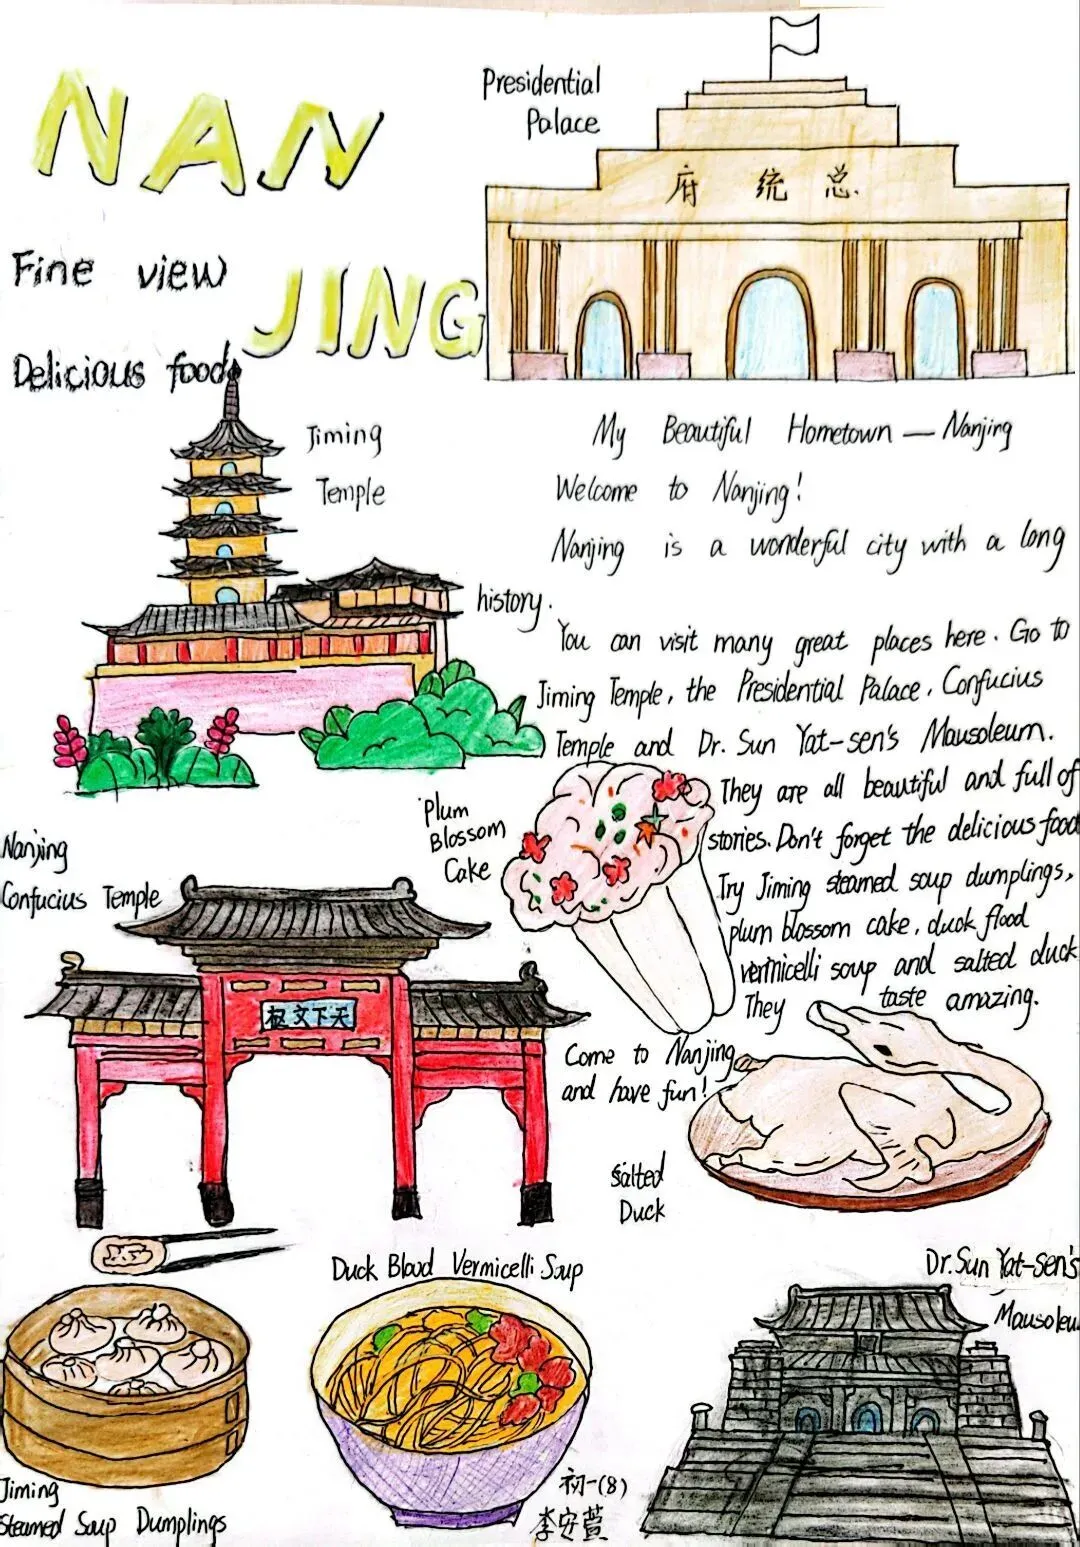 NAN
JING
Fine view
Delicious food
Presidential
Palace
府 统 总
Jiming
Temple
My Beautiful Hometown — Nanjing
Welcome to Nanjing!
Nanjing is a wonderful city with a long
history.
You can visit many great places here. Go to
Jiming Temple, the Presidential Palace, Confucius
Temple and Dr. Sun Yat-sen's Mausoleum.
They are all beautiful and full of
stories. Don't forget the delicious food
Try Jiming steamed soup dumplings,
plum blossom cake, duck flood
vermicelli soup and salted duck
They taste amazing.
Come to Nanjing
and have fun!
Plum
Blossom
Cake
Nanjing
Confucius Temple
枢文下天
Salted
Duck
Duck Blood Vermicelli Soup
Dr. Sun Yat-sen's
Mausoleu
Jiming
Steamed Soup Dumplings
初一(8)
李安萱